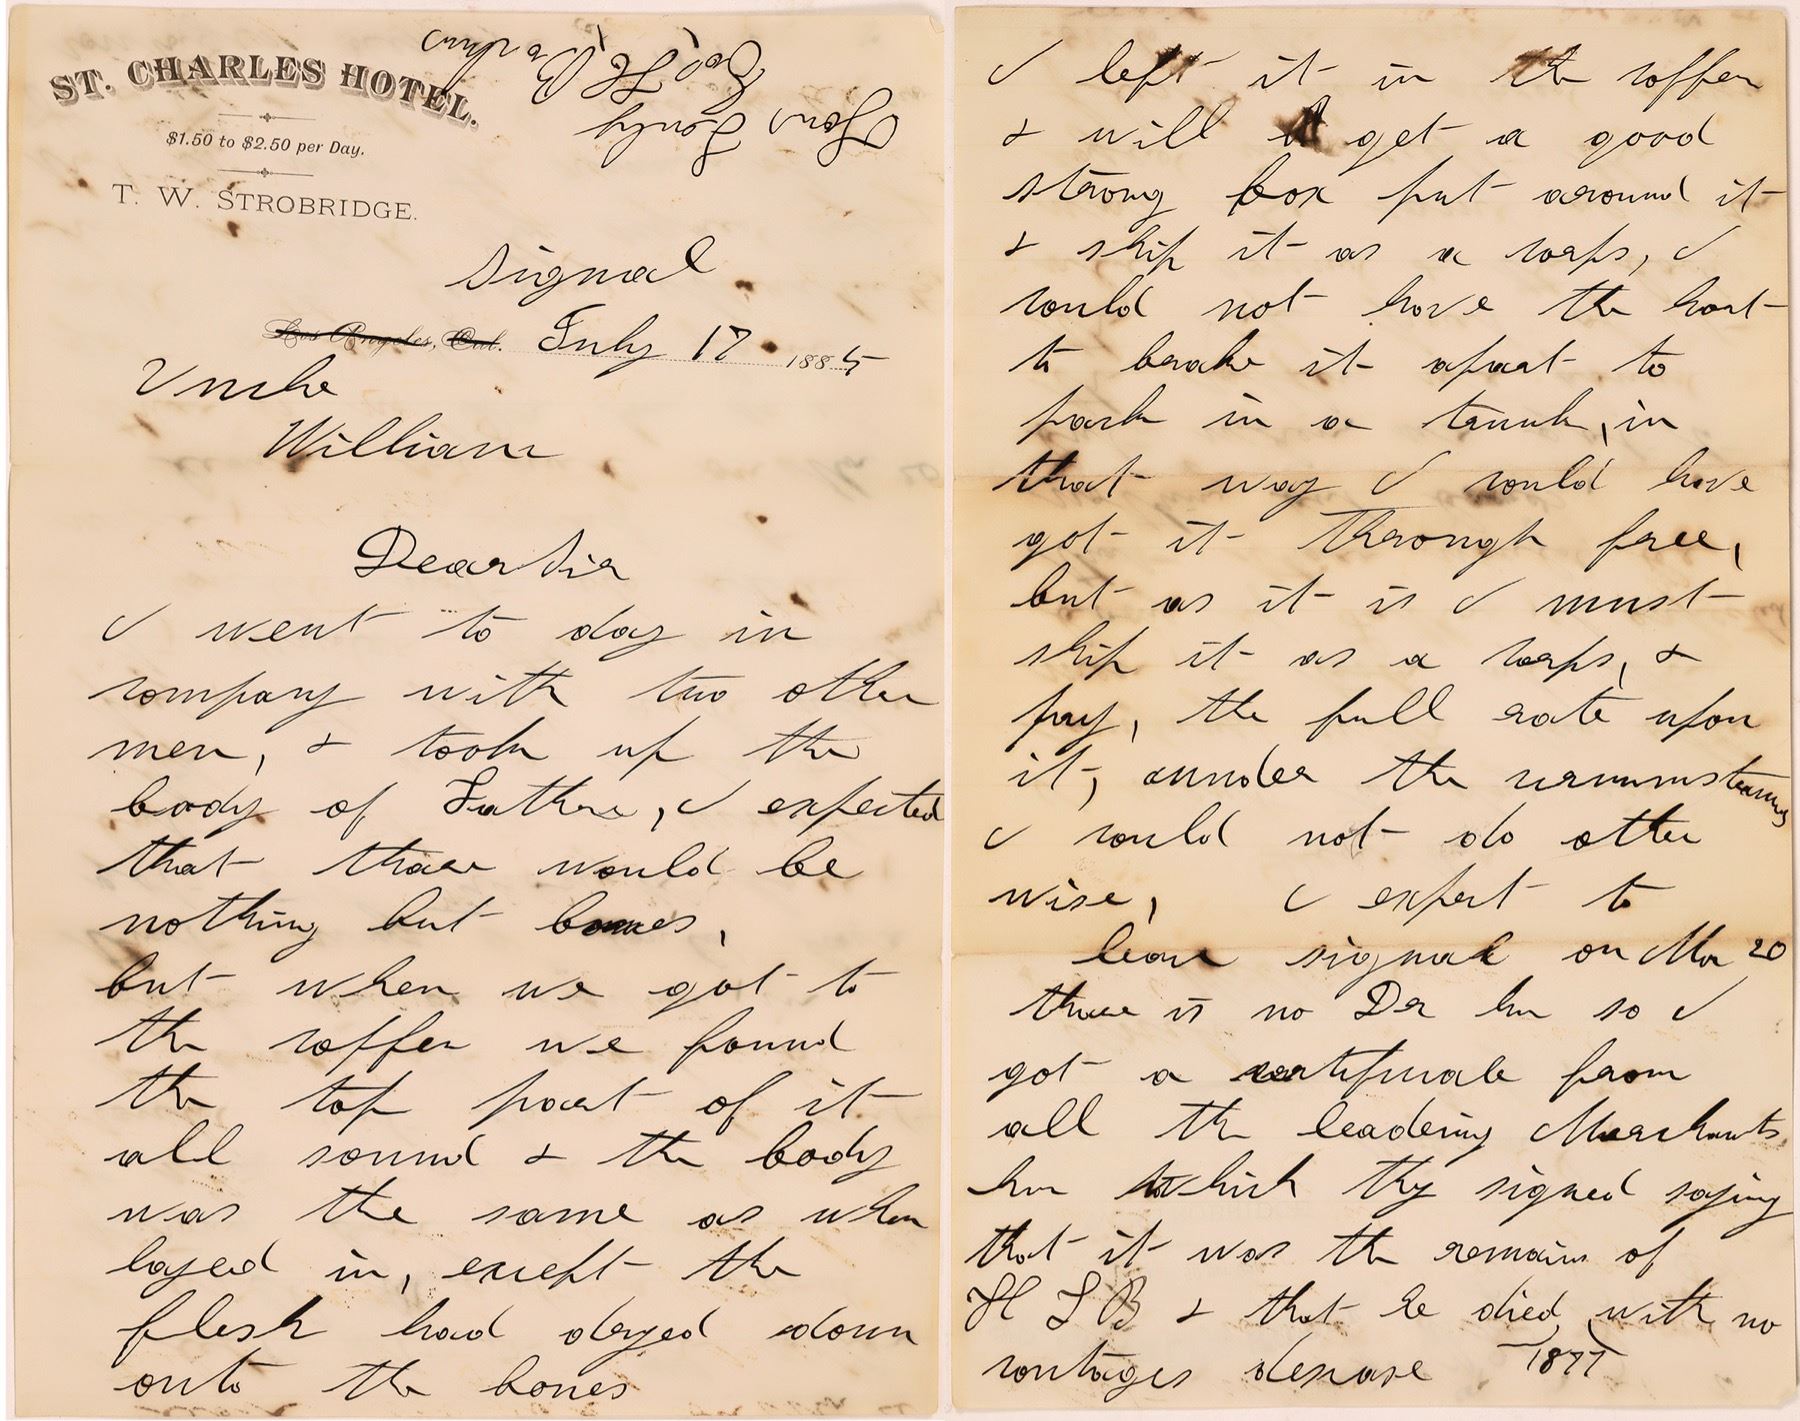 ST. CHARLES HOTEL.
$1.50 to $2.50 per Day.
T. W. STROBRIDGE.
Signal
Los Angeles, Cal. July 17 1885
Uncle
William
Dear Sir
I went to day in
company with two other
men, & took up the
body of Father, I expected
that thare would be
nothing but bones,
but when we got to
the coffen we found
the top part of it
all sound & the body
was the same as when
layed in, except the
flesh had dryed down
onto the bones
I left it in the coffen
& will get a good
strong box put around it
& ship it as a corps, I
could not have the hart
to brake it apart to
pack in a trunk, in
that way I could have
got it through free,
but as it is I must
ship it as a corps, &
pay, the full rate upon
it, under the circumstances
I could not do other
wise, I expect to
leave signal on Mo 20
thare is no Dr hre so I
got a certificate from
all the leading Merchants
hre which thy signed saying
that it was the remains of
H L B & that he died, with no
contages desease 1877
Yours Truly
Geo H